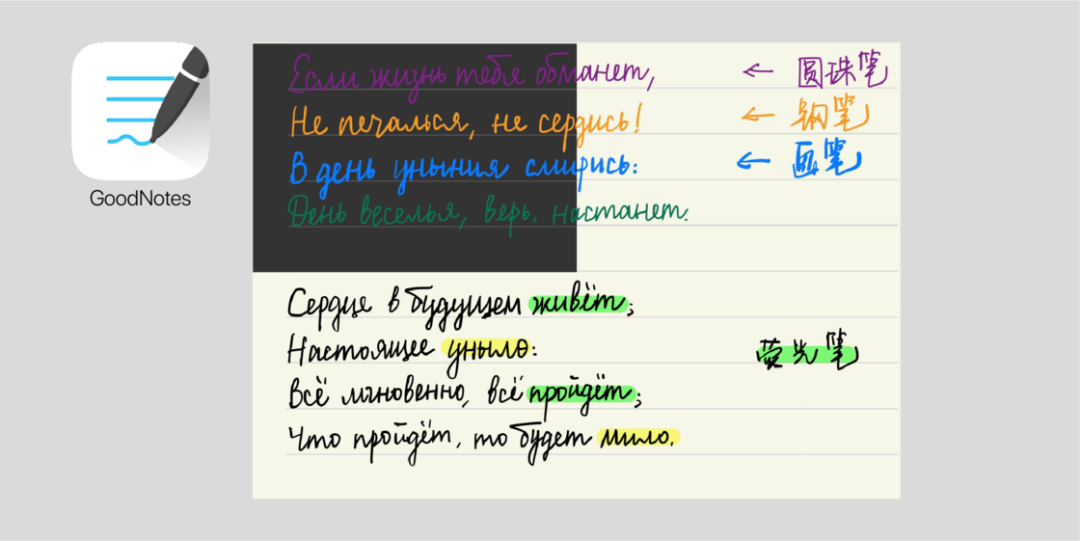 GoodNotes
Если жизнь тебя обманет, ← 圆珠笔
Не печалься, не сердись! ← 钢笔
В день уныния смирись: ← 画笔
День веселья, верь, настанет.
Сердце в будущем живёт;
Настоящее уныло: 荧光笔
Всё мгновенно, всё пройдёт;
Что пройдёт, то будет мило.